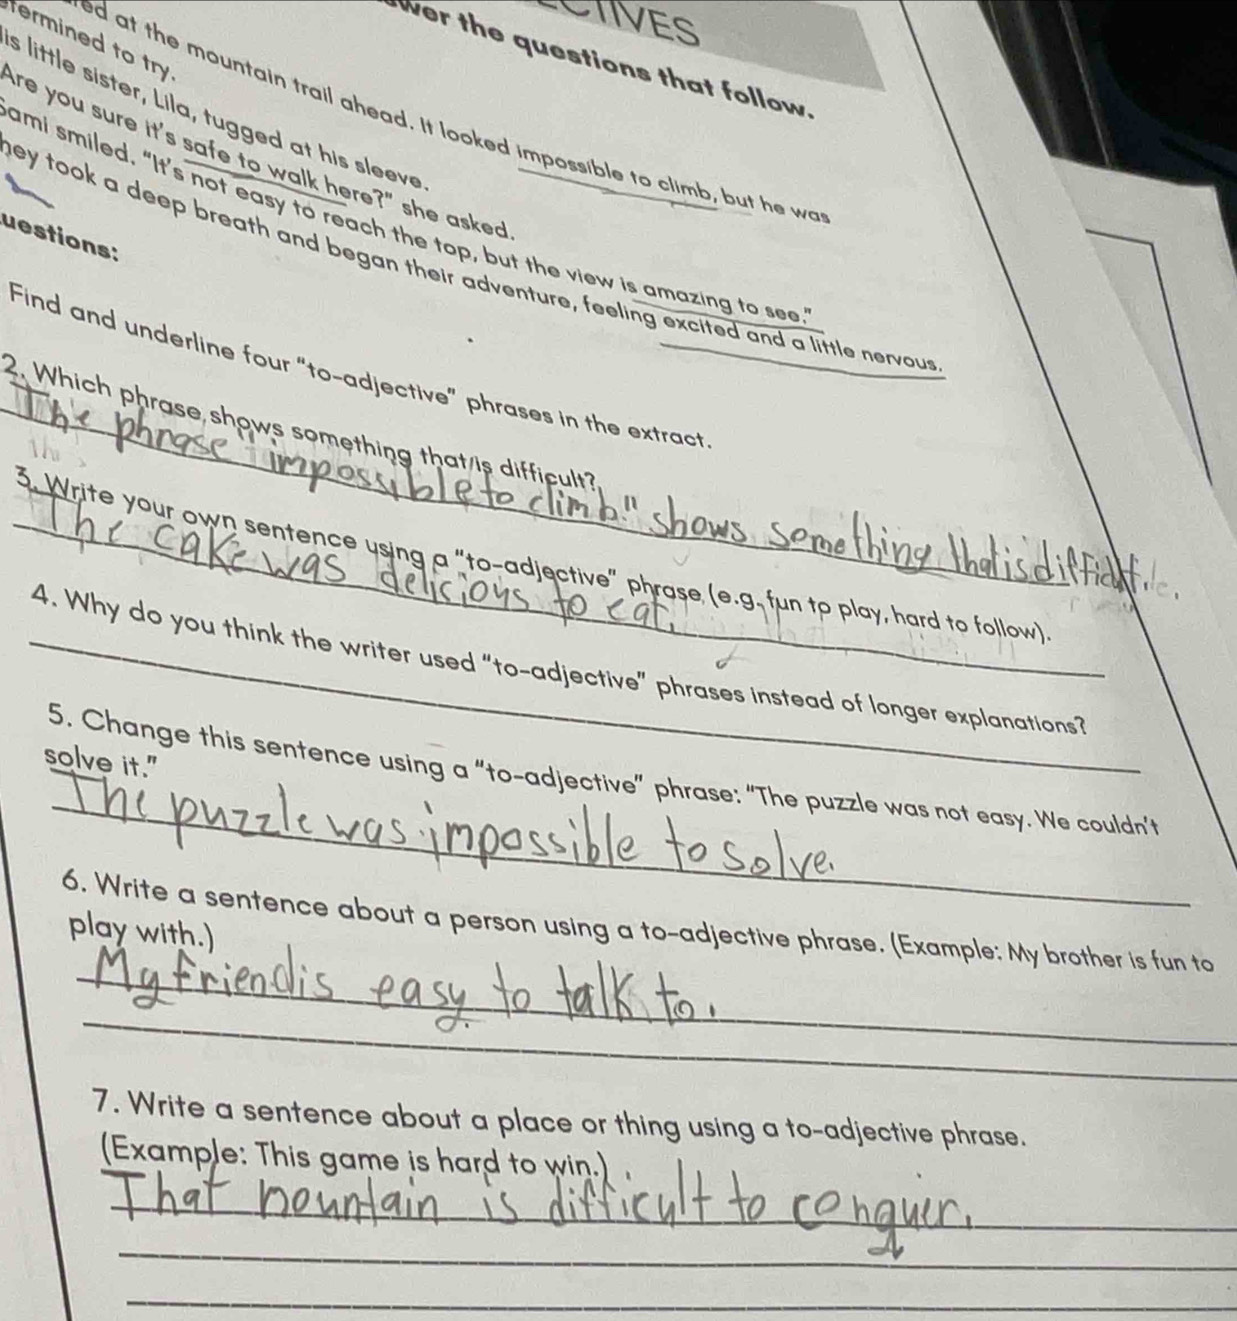 CTIVES
wer the questions that follow.
ed at the mountain trail ahead. It looked impossible to climb, but he was
termined to try.
is little sister, Lila, tugged at his sleeve.
Are you sure it's safe to walk here?" she asked.
Sami smiled. "It's not easy to reach the top, but the view is amazing to see."
hey took a deep breath and began their adventure, feeling excited and a little nervous.
uestions:
Find and underline four "to-adjective" phrases in the extract.
2. Which phrase shows something that is difficult?
The phrase "impossible to climb." shows something that is difficult.
3. Write your own sentence using a "to-adjective" phrase (e.g. fun to play, hard to follow).
The cake was delicious to eat.
4. Why do you think the writer used "to-adjective" phrases instead of longer explanations?
5. Change this sentence using a "to-adjective" phrase: "The puzzle was not easy. We couldn't
solve it."
The puzzle was impossible to solve.
6. Write a sentence about a person using a to-adjective phrase. (Example: My brother is fun to
play with.)
My friend is easy to talk to.
7. Write a sentence about a place or thing using a to-adjective phrase.
(Example: This game is hard to win.)
That mountain is difficult to conquer.